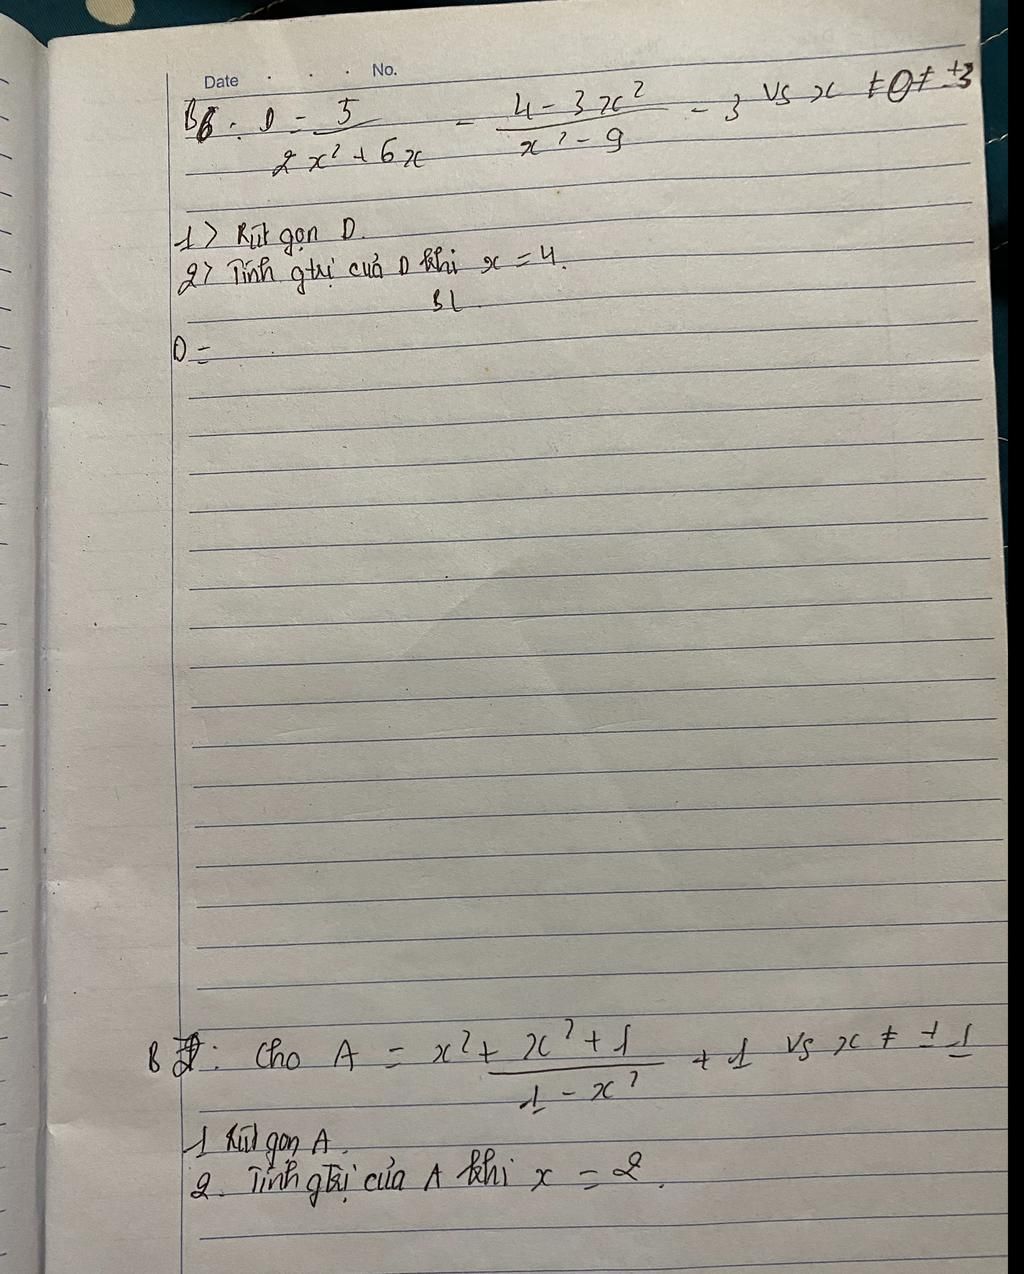 Date . . . No.
B6: D = 5/(2x² + 6x) - (4 - 3x²)/(x² - 9) - 3 vs x ≠ 0 ≠ ±3
1> Rút gọn D.
2> Tính gtrị cuả D khi x = 4.
BL.
D =
B7: Cho A = x² + (x² + 1)/(1 - x²) + 1 vs x ≠ ±1
1 Rút gọn A.
2. Tính gtrị của A khi x = 2.